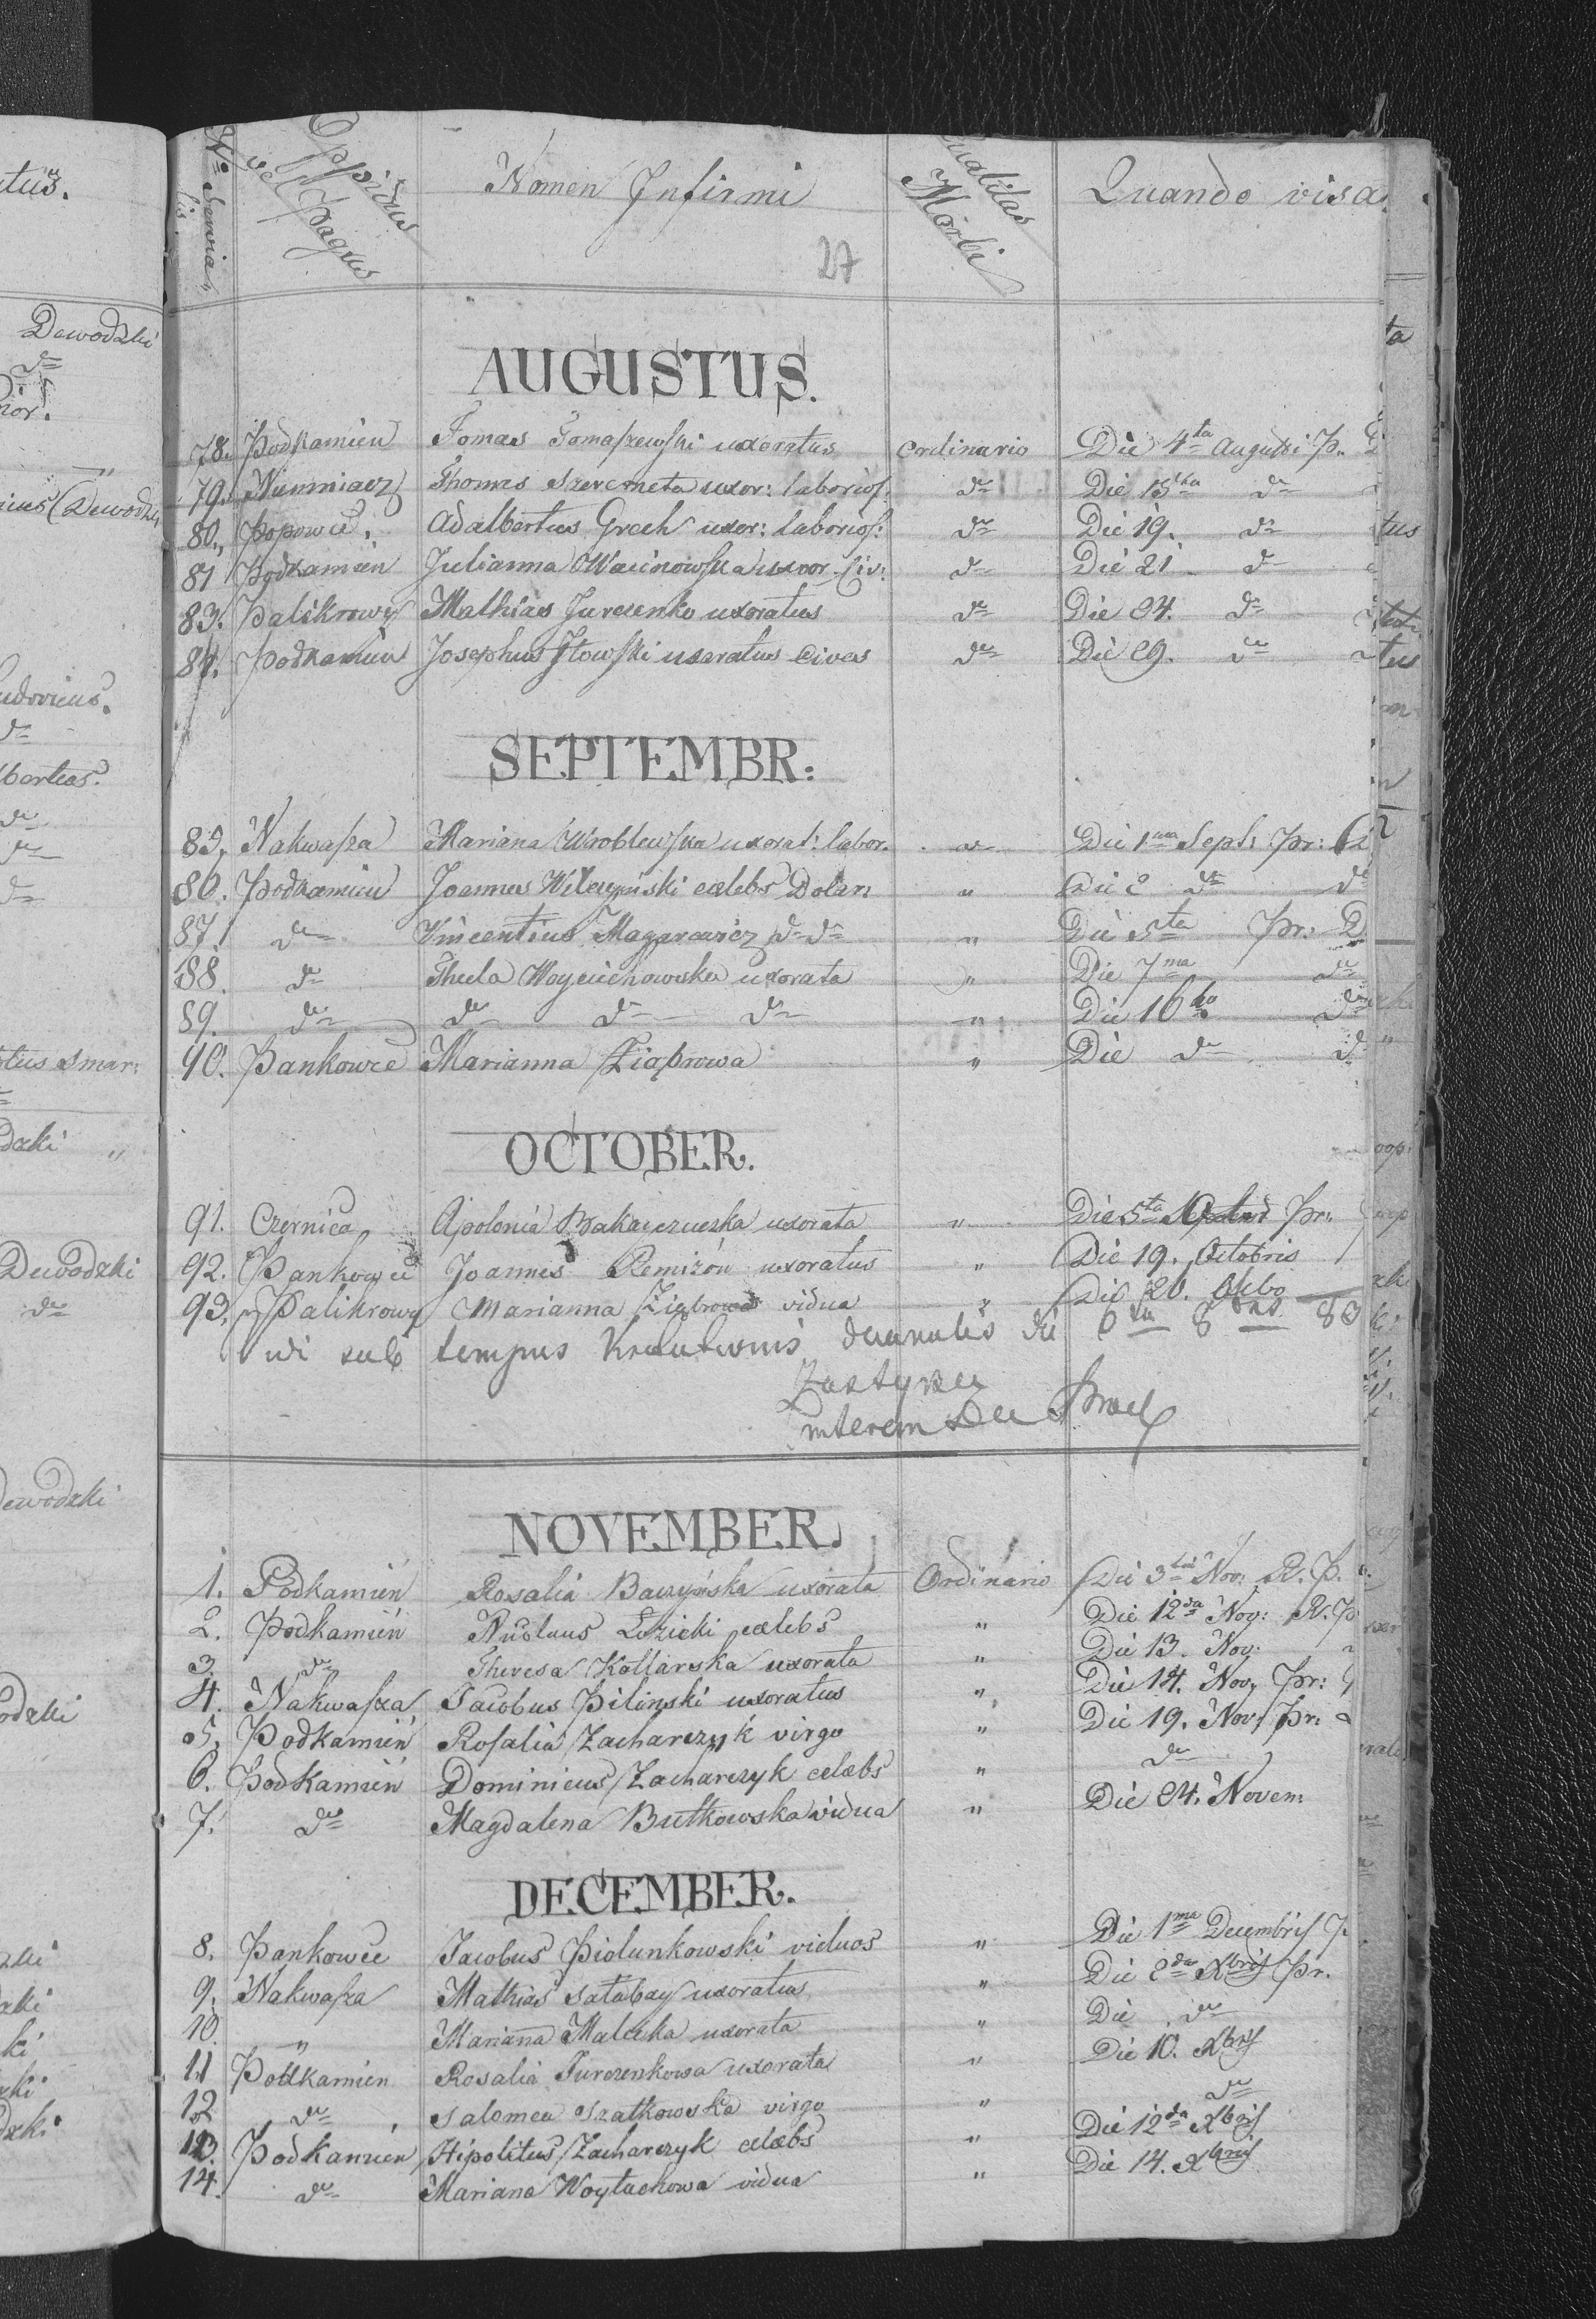 Nus Seria
lis
Oppidus
vel Pagus
Nomen Infirmi
Qualitas
Morbi
Quando visa
27
AUGUSTUS.
78. Podkamien Tomas Tomaszewski uxoratus ordinario Die 4ta Augusti P.
79. Niemiacz Thomas Szeremeta uxor: laborios: do Die 15ta do
80. Popowce. Adalbertus Grech uxor: laborios: do Die 19. do
81 Podkamien Julianna Wacinowska uxor Civ: do Die 21 do
83. Palikrowy Mathias Jurczenko uxoratus do Die 24. do
84. Podkamien Josephus Iłowski uxoratus Cives do Die 29. do
SEPTEMBR:
85. Nakwasza Mariana Wroblewska uxorat: labor. do Die 1ma Sept: Pr:
86. Podkamien Joannes Wilczyński celebs Dolar. " Die 2 do do
87. do Vincentius Magarewicz do do " Die 5ta Pr: D
88. do Thecla Woyciechowska uxorata " Die 7ma do
89. do do do do " Die 16to do
90. Pankowce Marianna Ziąbrowa " Die do do
OCTOBER.
91. Czernica Apolonia uxorata " Die 5ta Pr:
92. Pankowce Joannes Remizón uxoratus " Die 19. Octobris
93. Palikrowy Marianna Ziąbrowa vidua " Die 20. Octbo
Vidi sub tempus decanalis die 6ta 8bris 83
NOVEMBER.
1. Podkamień Rosalia Baczyńska uxorata Ordinario Die 3tia Nov: R. P.
2. Podkamień Nicolaus Łozicki celebs " Die 12da Nov: R. P
3. do Theresa Kotlarska uxorata " Die 13. Nov:
4. Nakwasza Jacobus Piliński uxoratus " Die 14. Nov. Pr:
5. Podkamień Rosalia Zacharczyk virgo " Die 19. Nov. Pr:
6. Podkamień Dominicus Zacharczyk celebs " do
7. do Magdalena Butkowska vidua " Die 24. Novem:
DECEMBER.
8. Pankowce Jacobus Piolunkowski viduos " Die 1ma Decembris P
9. Nakwasza Mathias Satabay uxoratus " Die 2da Xbris Pr.
10. " Mariana Malecka uxorata " Die do
11 Podkamien Rosalia Jurczenkowa uxorata " Die 10. Xbris
12 do Salomea Szatkowska virgo " do
13. Podkamien Hipolitus Zacharczyk celebs " Die 12da Xbris
14. do Mariana Woytachowa vidua " Die 14. Xbris